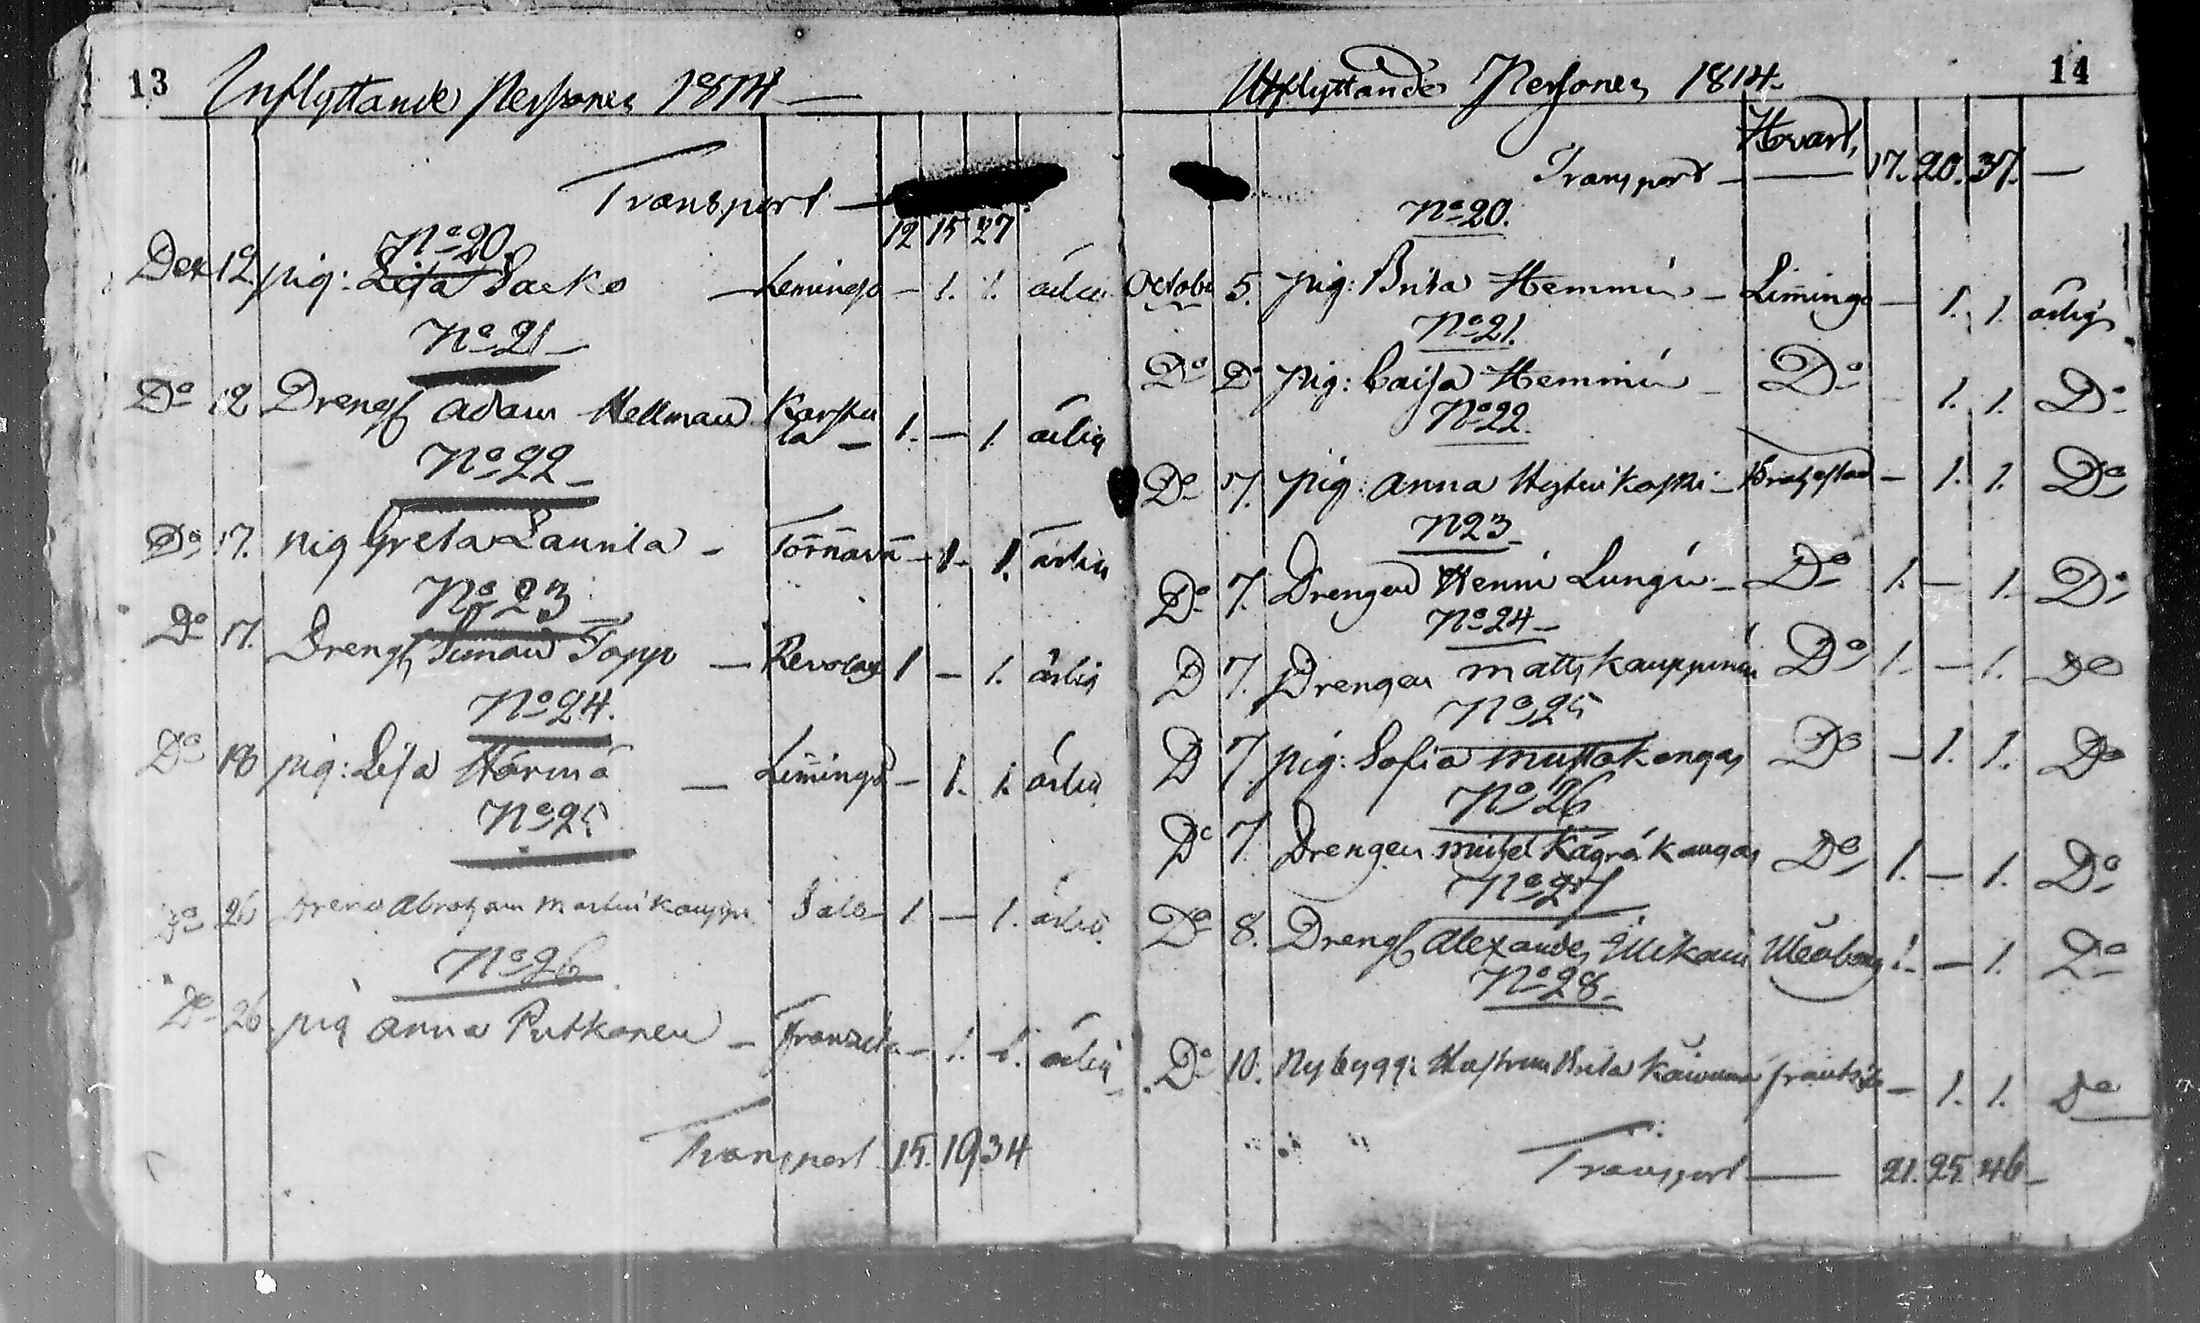 13 Inflyttande Personer 1814
Transport
12 15 27
No 20.
Dec 12 pig: Lisa Sacko — Limingo — 1. 1. ärlig
No 21
Do 12 Drengf Adam Hellman Karstu
la — 1. — 1. ärlig
No 22
Do 17. pig Greta Launila — — 1. 1. ärlig
No 23
Do 17. Drengf Simon Topp — Revolax 1 — 1. ärlig
No 24.
Do 18 pig: Lisa Härmä — Limingo — 1. 1. ärlig
No 25
Do 26 Dreng Abraham Salo 1 — 1. ärlig
No 26
Do 26 pig Anna Putkonen — — 1. 1. ärlig
Transport 15. 19 34
Utflyttande Personer 1814. 14
Hvart,
Transport — 17. 20. 37. —
No 20.
October 5. pig: Brita Hemmin — Limingo — 1. 1. ärlig
No 21.
Do Do pig: Caisa Hemmin — Do 1. 1. Do
No 22.
Do 7. pig: Anna — 1. 1. Do
N 23
Do 7. Drengen Henric — Do 1. — 1. Do
No 24
D 7. Drengen Matts Kauppinen Do 1. — 1. Do
No 25
D 7. pig: Sofia Mustakangas Do — 1. 1. Do
No 26
Do 7. Drengen Michel Do 1. — 1. Do
No 27
Do 8. Drengf Alexander Uleåborg 1. — 1. Do
No 28
Do 10. Nybygg: Hustrun Brita — 1. 1. Do
Transport — 21. 25. 46 —